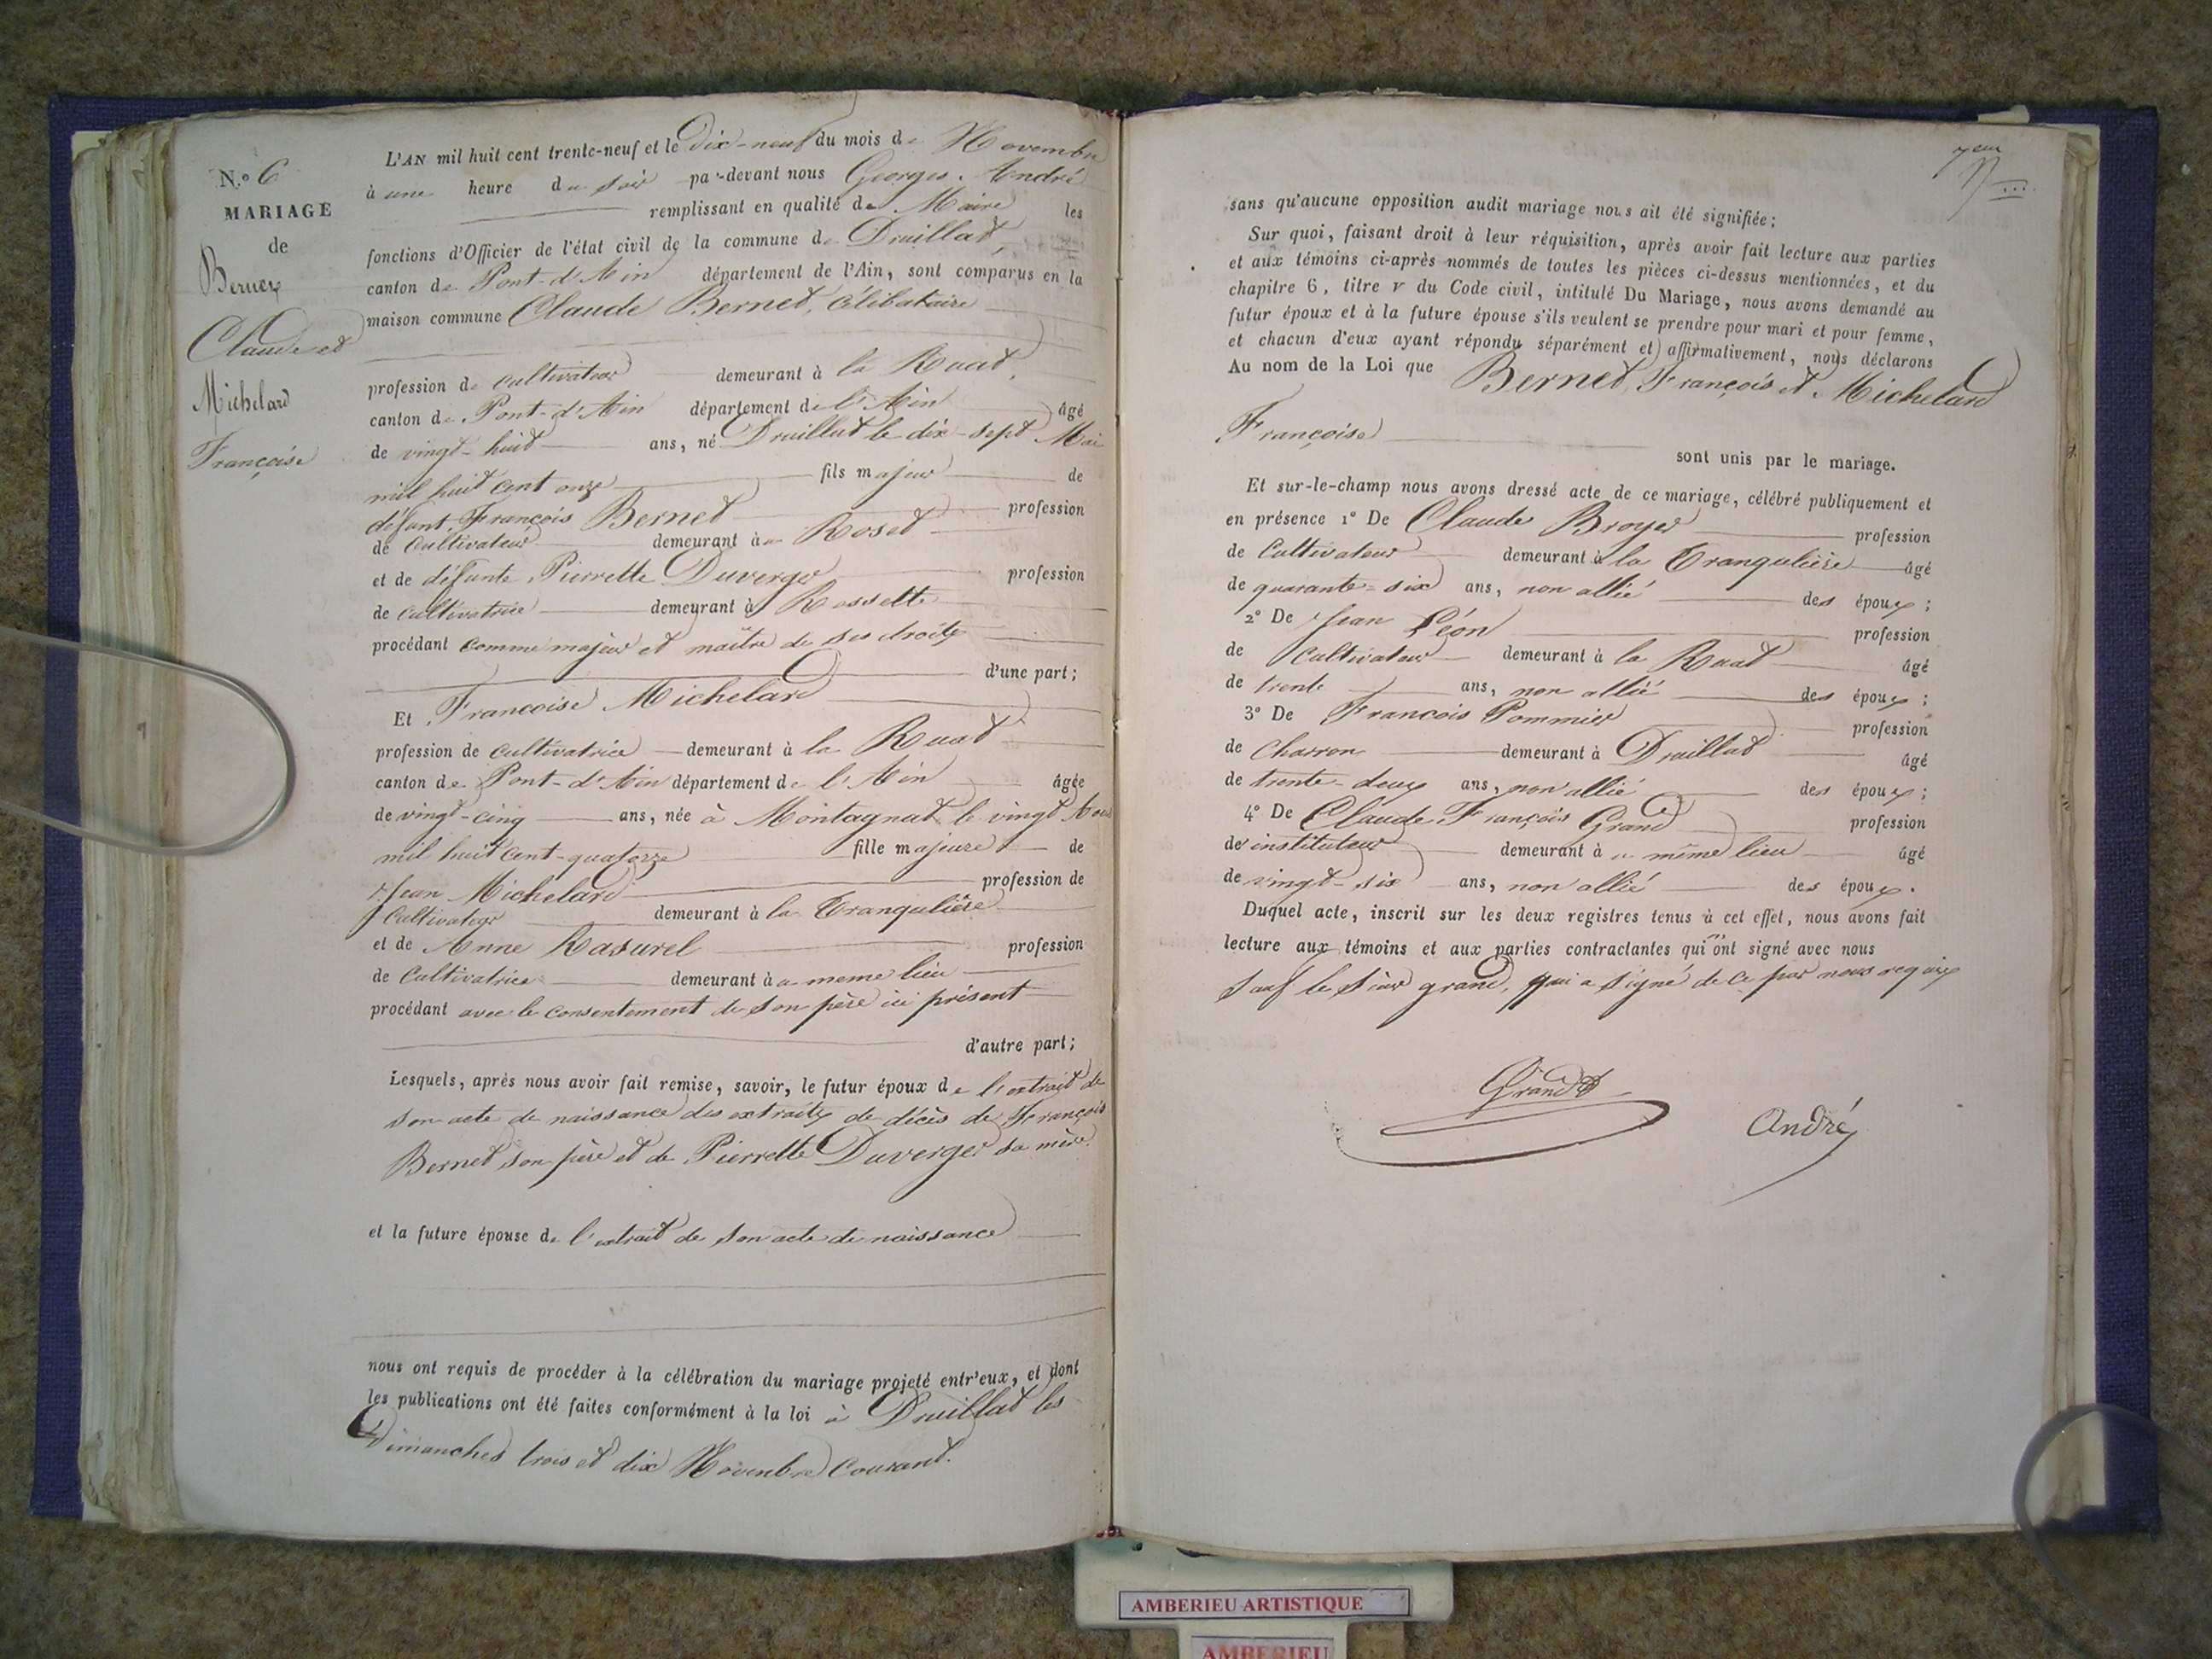 N.º 6
MARIAGE
de
Bernet
Claude et
Michelard
Françoise
L'AN mil huit cent trente-neuf et le dix-neuf du mois de Novembre
à une heure du soir par-devant nous Georges André
remplissant en qualité de Maire les
fonctions d'Officier de l'état civil de la commune de Druillat,
canton de Pont-d'Ain département de l'Ain, sont comparus en la
maison commune Claude Bernet, célibataire
profession de cultivateur demeurant à la Ruat,
canton de Pont-d'Ain département de l'Ain âgé
de vingt-huit ans, né Druillat le dix-sept Mai
mil huit cent onze fils majeur de
défunt François Bernet profession
de Cultivateur demeurant à Roset
et de défunte Pierrette Duverger profession
de cultivatrice demeurant à Rossette
procédant comme majeur et maître de ses droits
d'une part;
Et Françoise Michelard
profession de cultivatrice demeurant à la Ruat
canton de Pont-d'Ain département de l'Ain âgée
de vingt-cinq ans, née à Montagnat le vingt Aout
mil huit cent-quatorze fille majeure de
Jean Michelard profession de
Cultivateur demeurant à la Tranqulière
et de Anne Rasurel profession
de Cultivatrice demeurant à u meme lieu
procédant avec le consentement de son père ici présent
d'autre part;
Lesquels, après nous avoir fait remise, savoir, le futur époux de l'extrait de
son acte de naissance des extraits de décès de François
Bernet son père et de Pierrette Duverger sa mère.
et la future épouse de l'extrait de son acte de naissance
nous ont requis de procéder à la célébration du mariage projeté entr'eux, et dont
les publications ont été faites conformément à la loi à Druillat les
Dimanches trois et dix Novembre Courant.
sans qu'aucune opposition audit mariage nous ait été signifiée;
Sur quoi, faisant droit à leur réquisition, après avoir fait lecture aux parties
et aux témoins ci-après nommés de toutes les pièces ci-dessus mentionnées, et du
chapitre 6, titre v du Code civil, intitulé Du Mariage, nous avons demandé au
futur époux et à la future épouse s'ils veulent se prendre pour mari et pour femme,
et chacun d'eux ayant répondu séparément et affirmativement, nous déclarons
Au nom de la Loi que Bernet, François et Michelard
Françoise
sont unis par le mariage.
Et sur-le-champ nous avons dressé acte de ce mariage, célébré publiquement et
en présence 1º De Claude Broyer profession
de Cultivateur demeurant à la Tranqulière âgé
de quarante-six ans, non allié des époux;
2º De Jean Léon profession
de Cultivateur demeurant à la Ruat âgé
de trente ans, non allié des époux;
3º De François Pommier profession
de Charron demeurant à Druillat âgé
de trente-deux ans, non allié des époux;
4º De Claude François Grand profession
de instituteur demeurant à u même lieu âgé
de vingt-six ans, non allié des époux.
Duquel acte, inscrit sur les deux registres tenus à cet effet, nous avons fait
lecture aux témoins et aux parties contractantes qui n'ont signé avec nous
sauf le sieur grand, qui a signé de ce par nous requis
Grand
André
AMBERIEU ARTISTIQUE
AMBERIEU